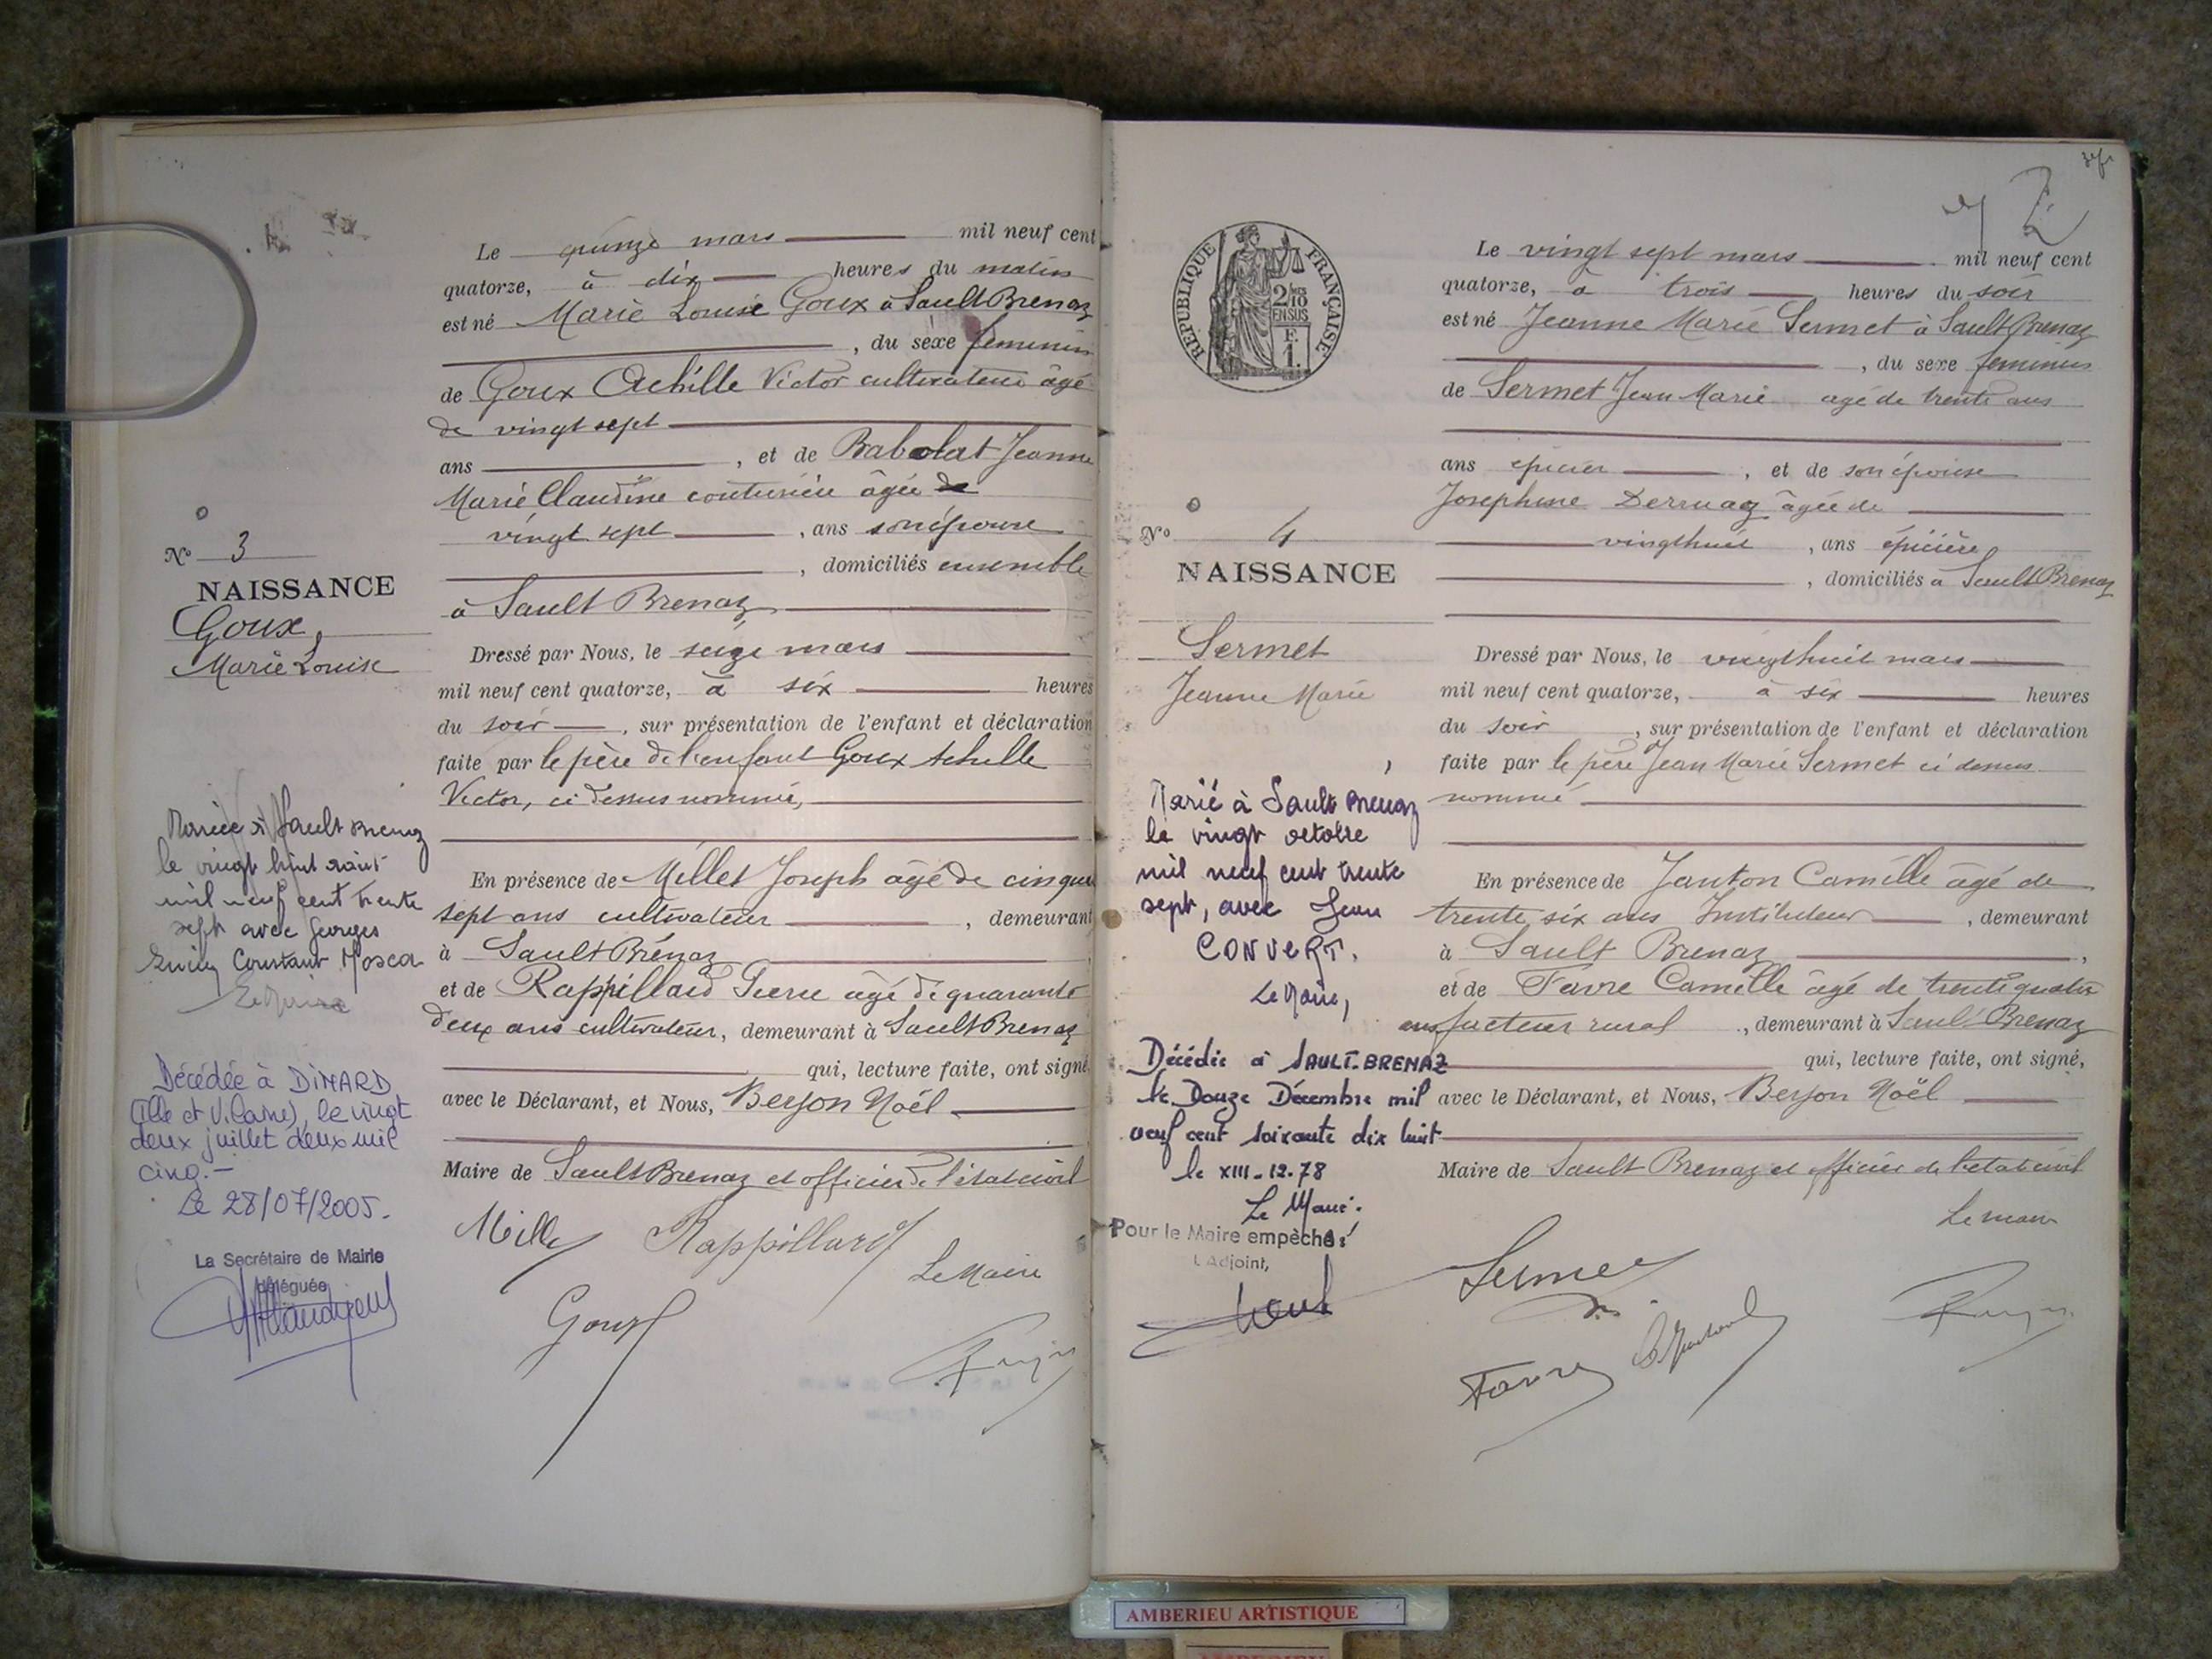 Le quinze mars mil neuf cent
quatorze, à dix heures du matin
est né Marie Louise Goux à Sault Brenaz
, du sexe féminin
de Goux Achille Victor cultivateur âgé
de vingt sept
ans , et de Babolat Jeanne
Marie Claudine couturière âgée de
vingt sept , ans son épouse
, domiciliés ensemble
à Sault Brenaz
Dressé par Nous, le seize mars
mil neuf cent quatorze, à six heures
du soir , sur présentation de l'enfant et déclaration
faite par le père de l'enfant Goux Achille
Victor, ci dessus nommé,
En présence de Millet Joseph âgé de cinquante
sept ans cultivateur , demeurant
à Sault Brénaz
et de Rappillard Pierre âgé de quarante
deux ans cultivateur, demeurant à Sault Brenaz
qui, lecture faite, ont signé,
avec le Déclarant, et Nous, Berjon Noël
Maire de Sault Brenaz et officier de l'état civil
Rappillard
Le Maire
Goux
N° 3
NAISSANCE
Goux,
Marie Louise
Mariée à Sault Brenaz
le vingt huit août
mil neuf cent trente
sept avec Georges
Constant Mosca
Le Maire
Décédée à DINARD
(Ille et Vilaine), le vingt
deux juillet deux mil
cinq.-
Le 28/07/2005.
La Secrétaire de Mairie
déléguée
RÉPUBLIQUE FRANÇAISE
2/10
EN SUS
F.
1.
2
Le vingt sept mars mil neuf cent
quatorze, à trois heures du soir
est né Jeanne Marie Sermet à Sault Brenaz
, du sexe féminin
de Sermet Jean Marie agé de trente ans
ans épicier , et de son épouse
Josephine âgée de
vingthuit , ans épicière
, domiciliés à Sault Brenaz
Dressé par Nous, le vingthuit mars
mil neuf cent quatorze, à six heures
du soir , sur présentation de l'enfant et déclaration
faite par le père Jean Marie Sermet ci dessus
nommé
En présence de Janton Camille âgé de
trente six ans Instituteur , demeurant
à Sault Brenaz ,
et de Favre Camille âgé de trente quatre
ans facteur rural , demeurant à Sault Brenaz
qui, lecture faite, ont signé,
avec le Déclarant, et Nous, Berjon Noël
Maire de Sault Brenaz et officier de l'état civil
Le maire
Sermet
Favre
N° 4
NAISSANCE
Sermet
Jeanne Marie
Marié à Sault Brenaz
le vingt octobre
mil neuf cent trente
sept, avec Jean
CONVERT.
Le Maire,
Décédée à SAULT-BRENAZ
le Douze Décembre mil
neuf cent soixante dix huit
le XIII-12-78
Le Maire.
Pour le Maire empêché:
L'Adjoint,
AMBERIEU ARTISTIQUE
AMBERIEU